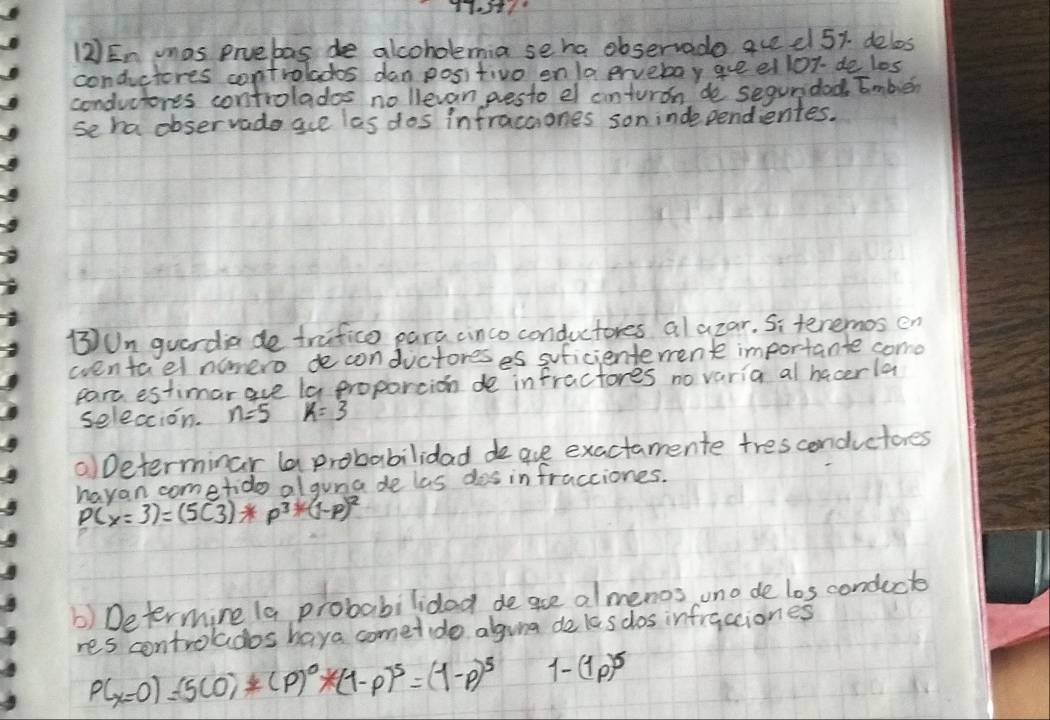 12) En unas pruebas de alcoholemia se ha observado que el 5% de los
conductores controlados dan positivo en la prueba y que el 10% de los
conductores controlados no llevan puesto el cinturón de seguridad. También
se ha observado que las dos infracciones son independientes.
13) Un guardia de tráfico para cinco conductores al azar. Si tenemos en
cuenta el número de conductores es suficientemente importante como
para estimar que la proporción de infractores no varía al hacer la
selección. n=5 K=3
a) Determinar la probabilidad de que exactamente tres conductores
hayan cometido alguna de las dos infracciones.
P(x=3)=(5C3)*p³*(1-p)²
b) Determine la probabilidad de que al menos uno de los conducto
res controlados haya cometido alguna de las dos infracciones
P(x=0)=(5C0)*(p)⁰*(1-p)⁵=(1-p)⁵ 1-(1p)⁵